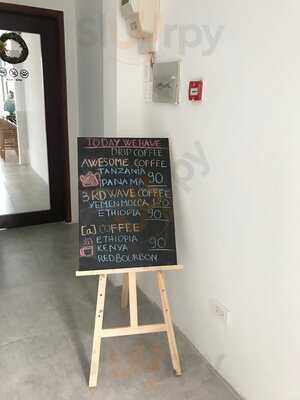 TODAY WE HAVE
DRIP COFFEE
AWESOME COFFEE
TANZANIA
PANAMA 90
3RD WAVE COFFEE
YEMEN MOCCA 120
ETHIOPIA 90
[a] COFFEE
ETHIOPIA
KENYA 90
RED BOURBON